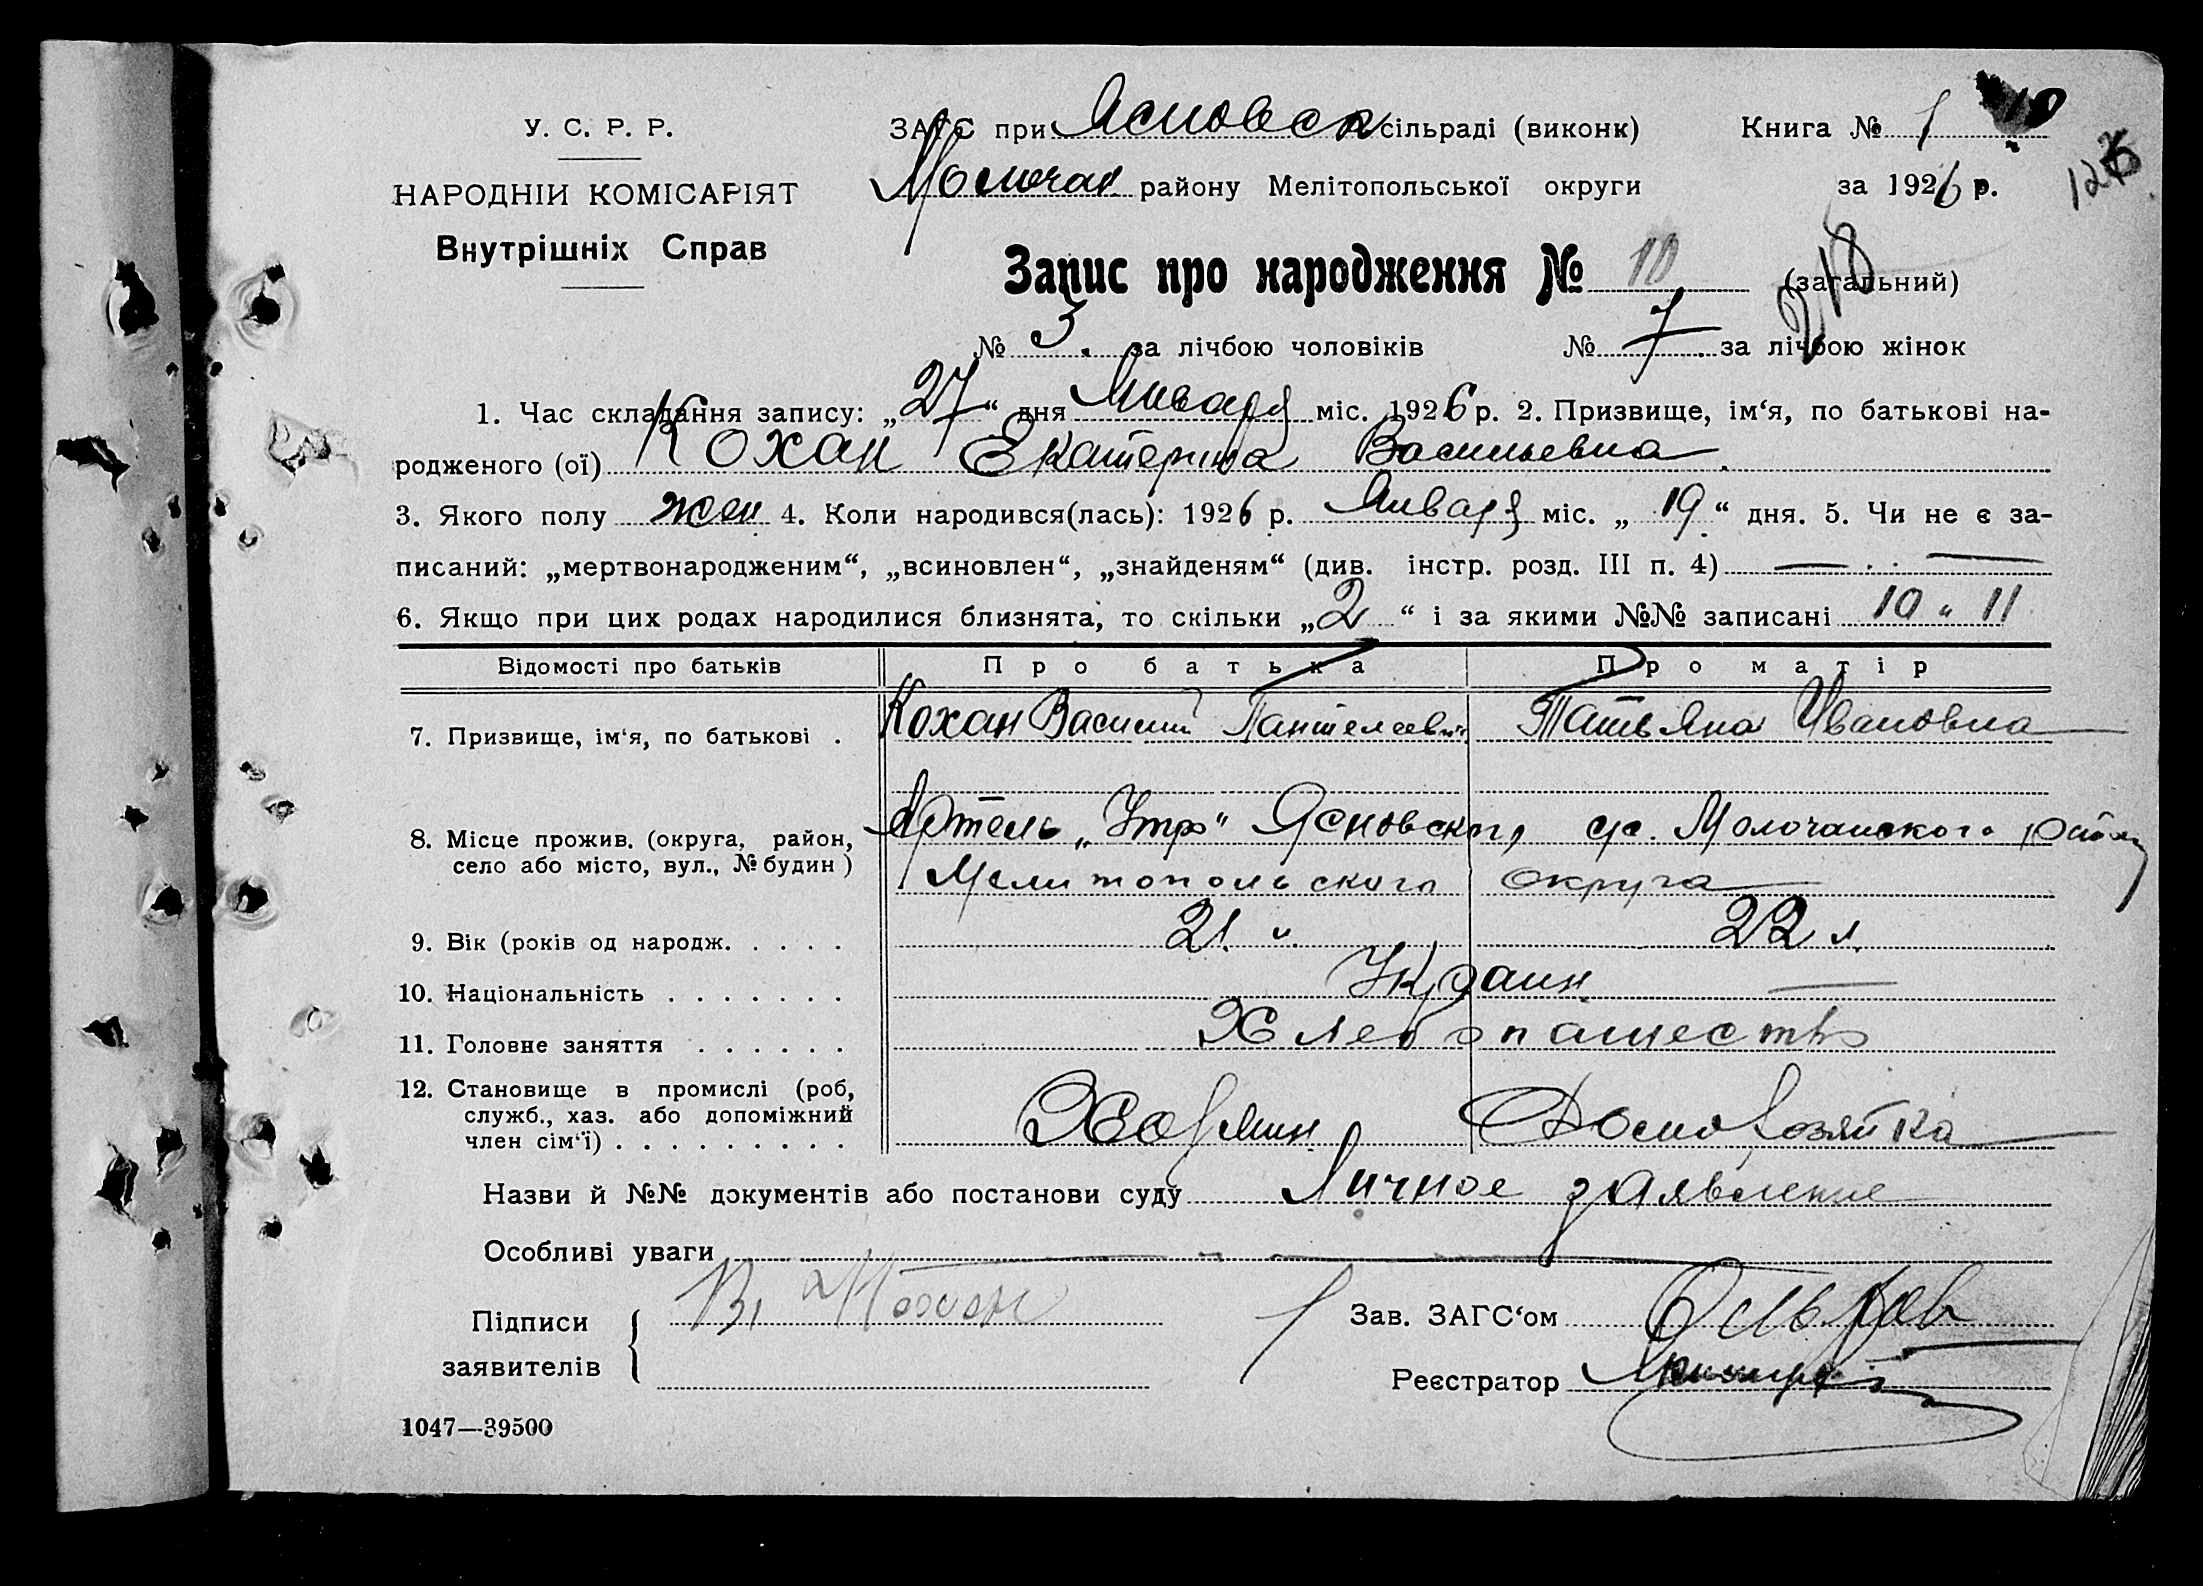 У. С. Р. Р.
НАРОДНІЙ КОМІСАРІЯТ
Внутрішніх Справ
ЗАГС при Ясновск сільраді (виконк) Книга № 1
Молочан району Мелітопольської округи за 1926 р.
Запис про народження № 10 (загальний)
218
№ 3 за лічбою чоловіків № 7 за лічбою жінок
1. Час складання запису: „27“ дня Января міс. 1926 р. 2. Призвище, ім‘я, по батькові на-
родженого (ої) Кохан Екатерина Васильевна
3. Якого полу жен 4. Коли народився(лась): 1926 р. Января міс. „19“ дня. 5. Чи не є за-
писаний: „мертвонародженим“, „всиновлен“, „знайденям“ (див. інстр. розд. III п. 4)
6. Якщо при цих родах народилися близнята, то скільки „2“ і за якими №№ записані 10 и 11
Відомості про батьків Про батька Про матір
7. Призвище, ім‘я, по батькові . Кохан Василий Пантелеевич Татьяна Ивановна
8. Місце прожив. (округа, район, Артель „Утро“ Ясновского с/с. Молочанского района
село або місто, вул., № будин) Мелитопольского округа
9. Вік (років од народж. . . . . 21 л. 22 л.
10. Національність . . . . . . . Украин
11. Головне заняття . . . . . . Хлебопашество
12. Становище в промислі (роб,
служб., хаз. або допоміжний
член сім‘ї) . . . . . . . . . Хозяин Домохозяйка
Назви й №№ документів або постанови суду Личное заявление
Особливі уваги
Підписи В. Кохан
заявителів
Зав. ЗАГС‘ом
Реєстратор
1047—39500